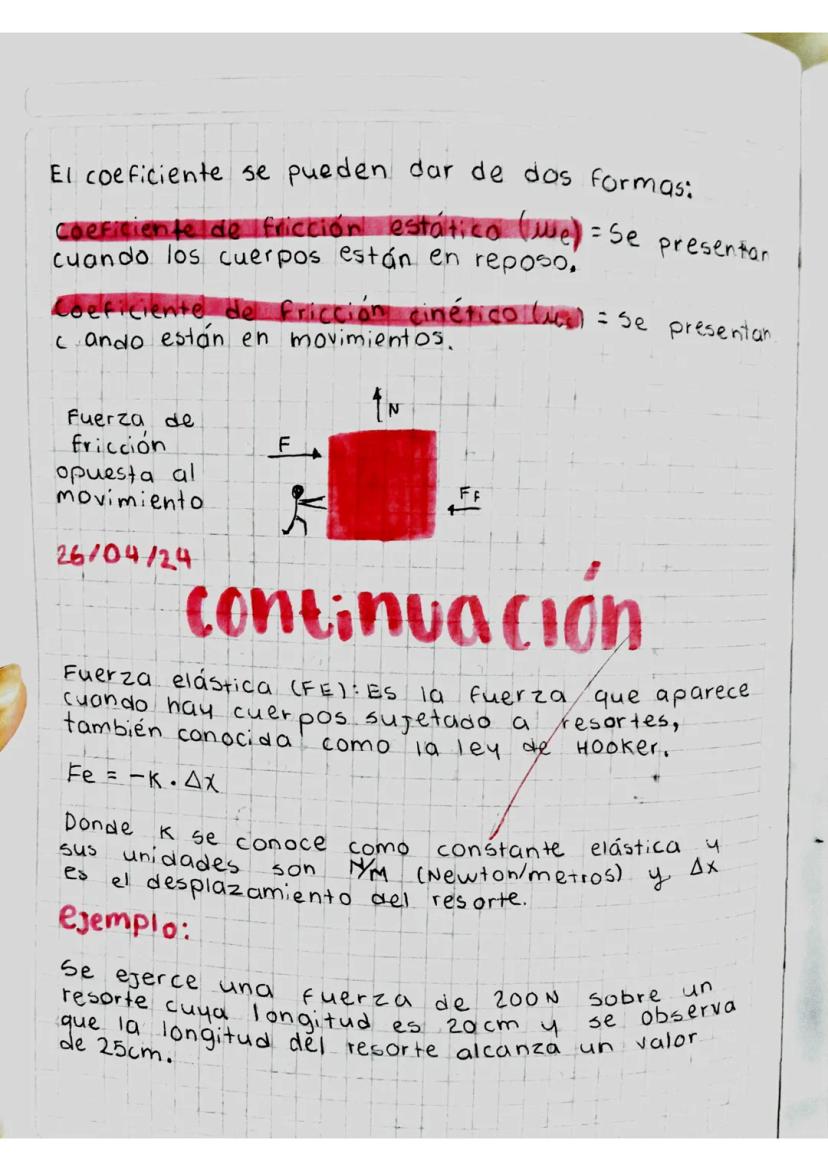 El coeficiente se pueden dar de dos formas:
Coeficiente de fricción estático (μe) = Se presentan
cuando los cuerpos están en reposo.
Coeficiente de fricción cinético (μc) = Se presentan
c ando están en movimientos.
N
Fuerza de
fricción
opuesta al
movimiento
F
FF
26/04/24
continuación
Fuerza elástica (FE): Es la fuerza que aparece
cuando hay cuerpos sujetado a resortes,
también conocida como la ley de HOOKER.
Fe = -K . Δx
Donde K se conoce como constante elástica y
sus unidades son N/M (Newton/metros) y Δx
es el desplazamiento del resorte.
ejemplo:
Se ejerce una fuerza de 200N sobre un
resorte cuya longitud es 20cm y se observa
que la longitud del resorte alcanza un valor
de 25cm.